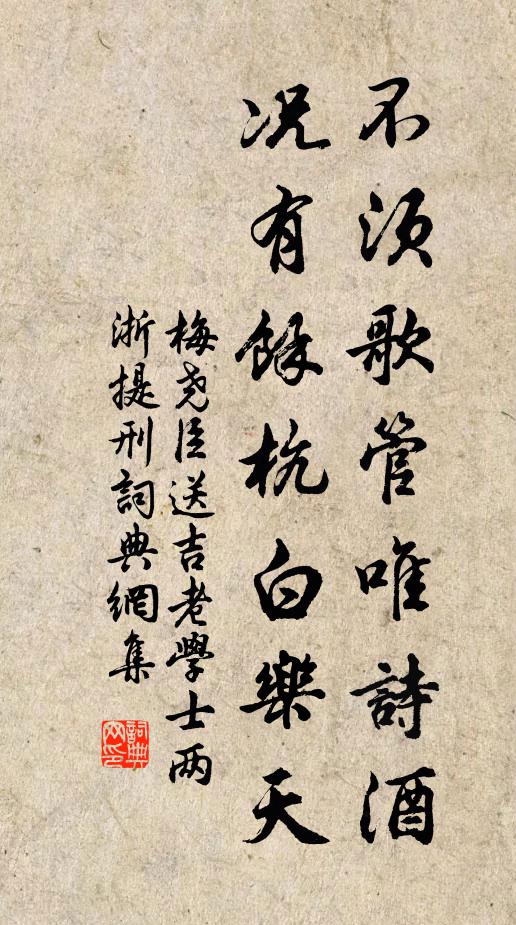 不須歌管唯詩酒
况有餘杭白樂天
梅尧臣送吉老學士两
浙提刑詞典網集
詞典网印